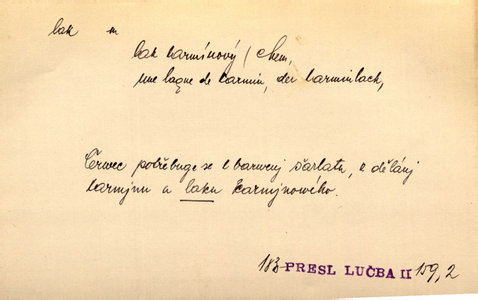 lak m
lak karmínový / chem,
une laque de carmin, der karminlack,
Červec potřebuge se k barwenj šarlatu, k dělánj
karmjnu a laku karmjnowého.
183- PRESL LUČBA II 159, 2